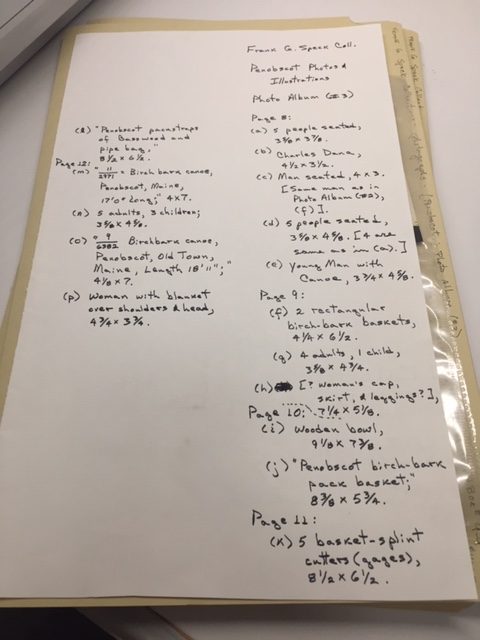 Frank G. Speck Coll.
Penobscot Photos &
Illustrations
Photo Album (#3)
Page 8:
(a) 5 people seated,
3 5/8 x 3 7/8.
(b) Charles Dana,
4 1/2 x 3 1/2.
(c) Man seated, 4 x 3.
[Same man as in
Photo Album (#2),
(f)].
(d) 5 people seated,
3 5/8 x 4 5/8. [4 are
same as in (a).]
(e) Young Man with
Canoe, 3 3/4 x 4 5/8.
Page 9:
(f) 2 rectangular
birch-bark baskets,
4 1/4 x 6 1/2.
(g) 4 adults, 1 child,
3 5/8 x 4 3/4.
(h) [? Woman's cap,
skirt, & leggings?],
7 1/4 x 5 1/8.
Page 10:
(i) Wooden bowl,
9 1/8 x 7 3/8.
(j) "Penobscot birch-bark
pack basket;"
8 3/8 x 5 3/4.
Page 11:
(k) 5 basket-splint
cutters (gages),
8 1/2 x 6 1/2.
(l) "Penobscot packstraps
of Basswood and
pipe bag,"
8 1/2 x 6 1/2.
Page 12:
(m) "11/2971 = Birch bark canoe,
Penobscot, Maine,
17'0" long;" 4 x 7.
(n) 5 adults, 3 children;
3 5/8 x 4 5/8.
(o) "9/6382 Birchbark canoe,
Penobscot, Old Town,
Maine, Length 18'11";"
4 1/8 x 7.
(p) Woman with blanket
over shoulders & head,
4 3/4 x 3 3/4.